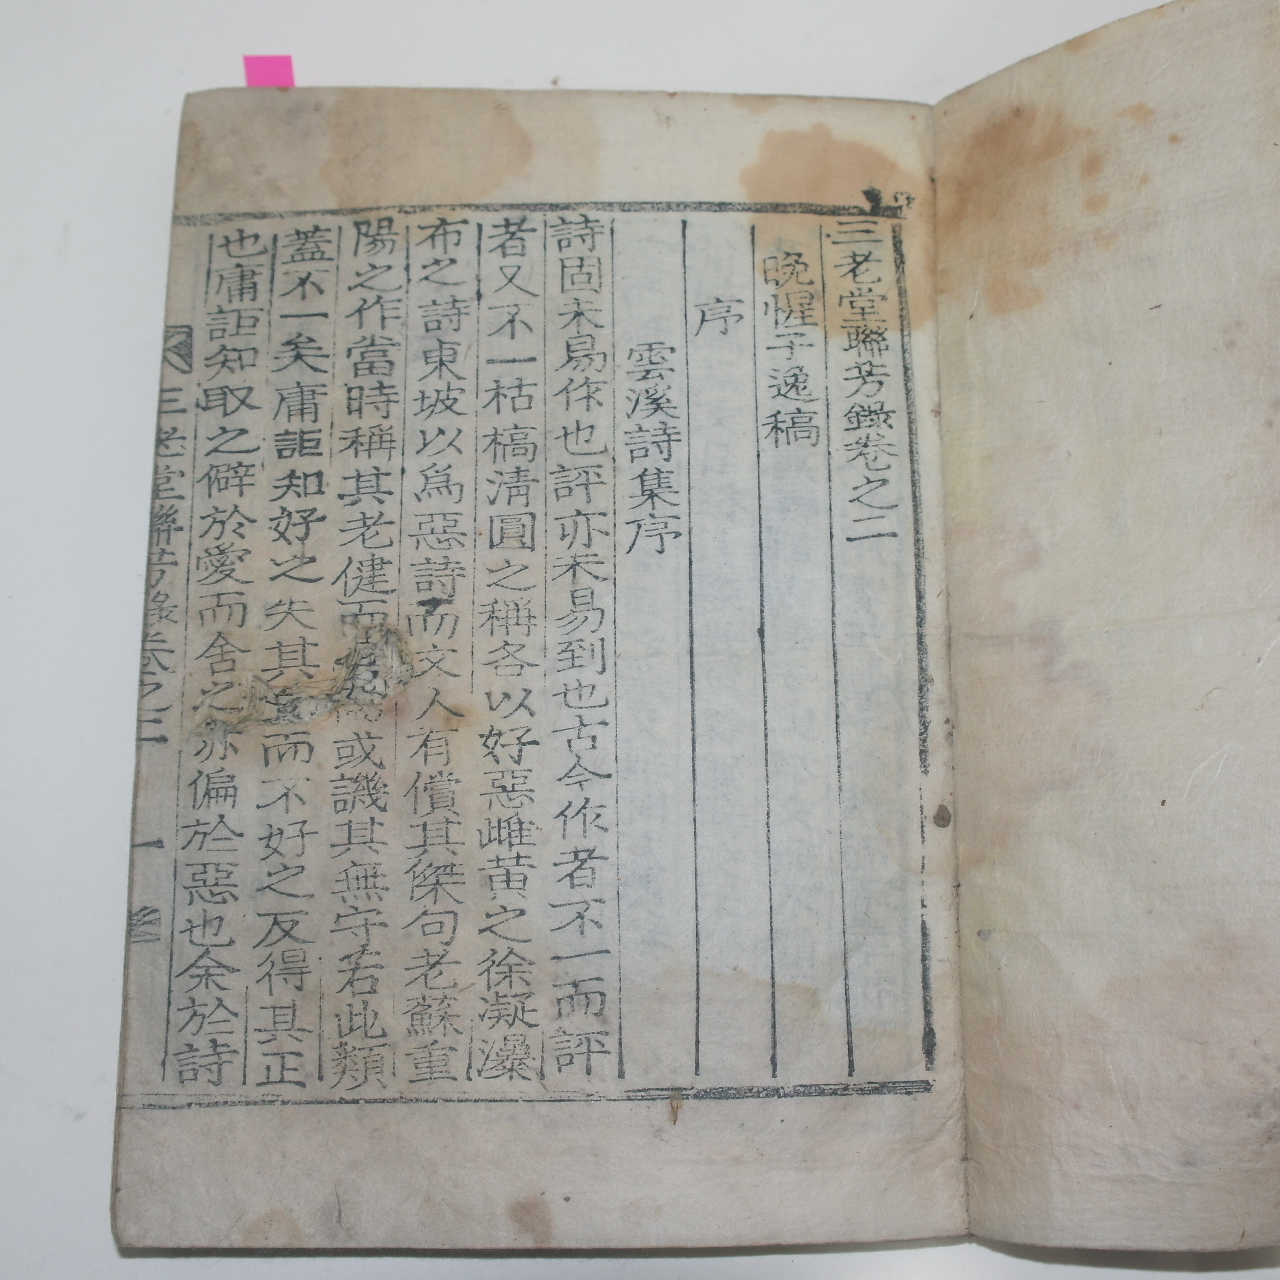 三老堂聯芳錄卷之二
晩惺子逸稿
序
雲溪詩集序
詩固未易作也評亦未易到也古今作者不一而評
者又不一枯槁淸圓之稱各以好惡雌黃之徐凝瀑
布之詩東坡以爲惡詩而文人有償其傑句老蘇重
陽之作當時稱其老健而儒或譏其無守若此類
蓋不一矣庸詎知好之失其而不好之反得其正
也庸詎知取之僻於愛而舍之亦偏於惡也余於詩
三老堂聯芳錄卷之二 一